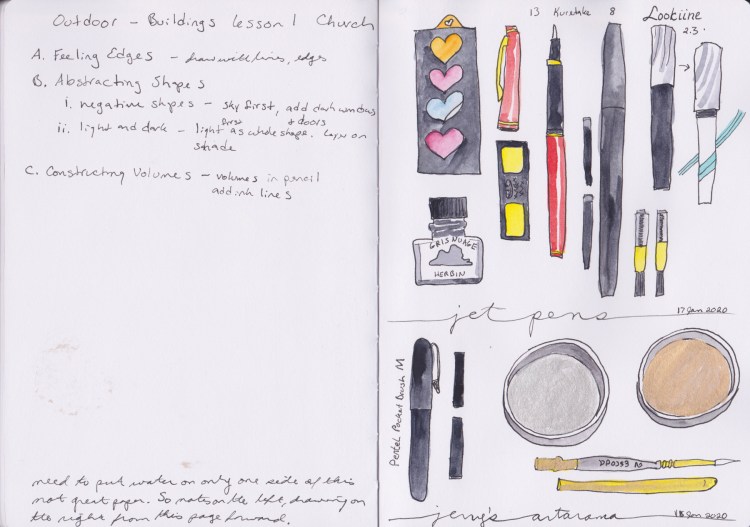 Outdoor - Buildings Lesson 1 Church
A. Feeling Edges - draw with lines, edges
B. Abstracting Shapes
i. negative shapes - sky first, add dark windows & doors
ii. light and dark - light first as whole shape. Layer on shade
C. Constructing Volumes - volumes in pencil
add ink lines
need to put water on only one side of this
not great paper. So notes on the left, drawing on
the right from this page forward.
13 Kuretake 8 Lookiine
2.3
GRIS NUAGE
HERBIN
jet pens
17 Jan 2020
Pentel Pocket Brush M
jerry's artarama
18 Jan 2020